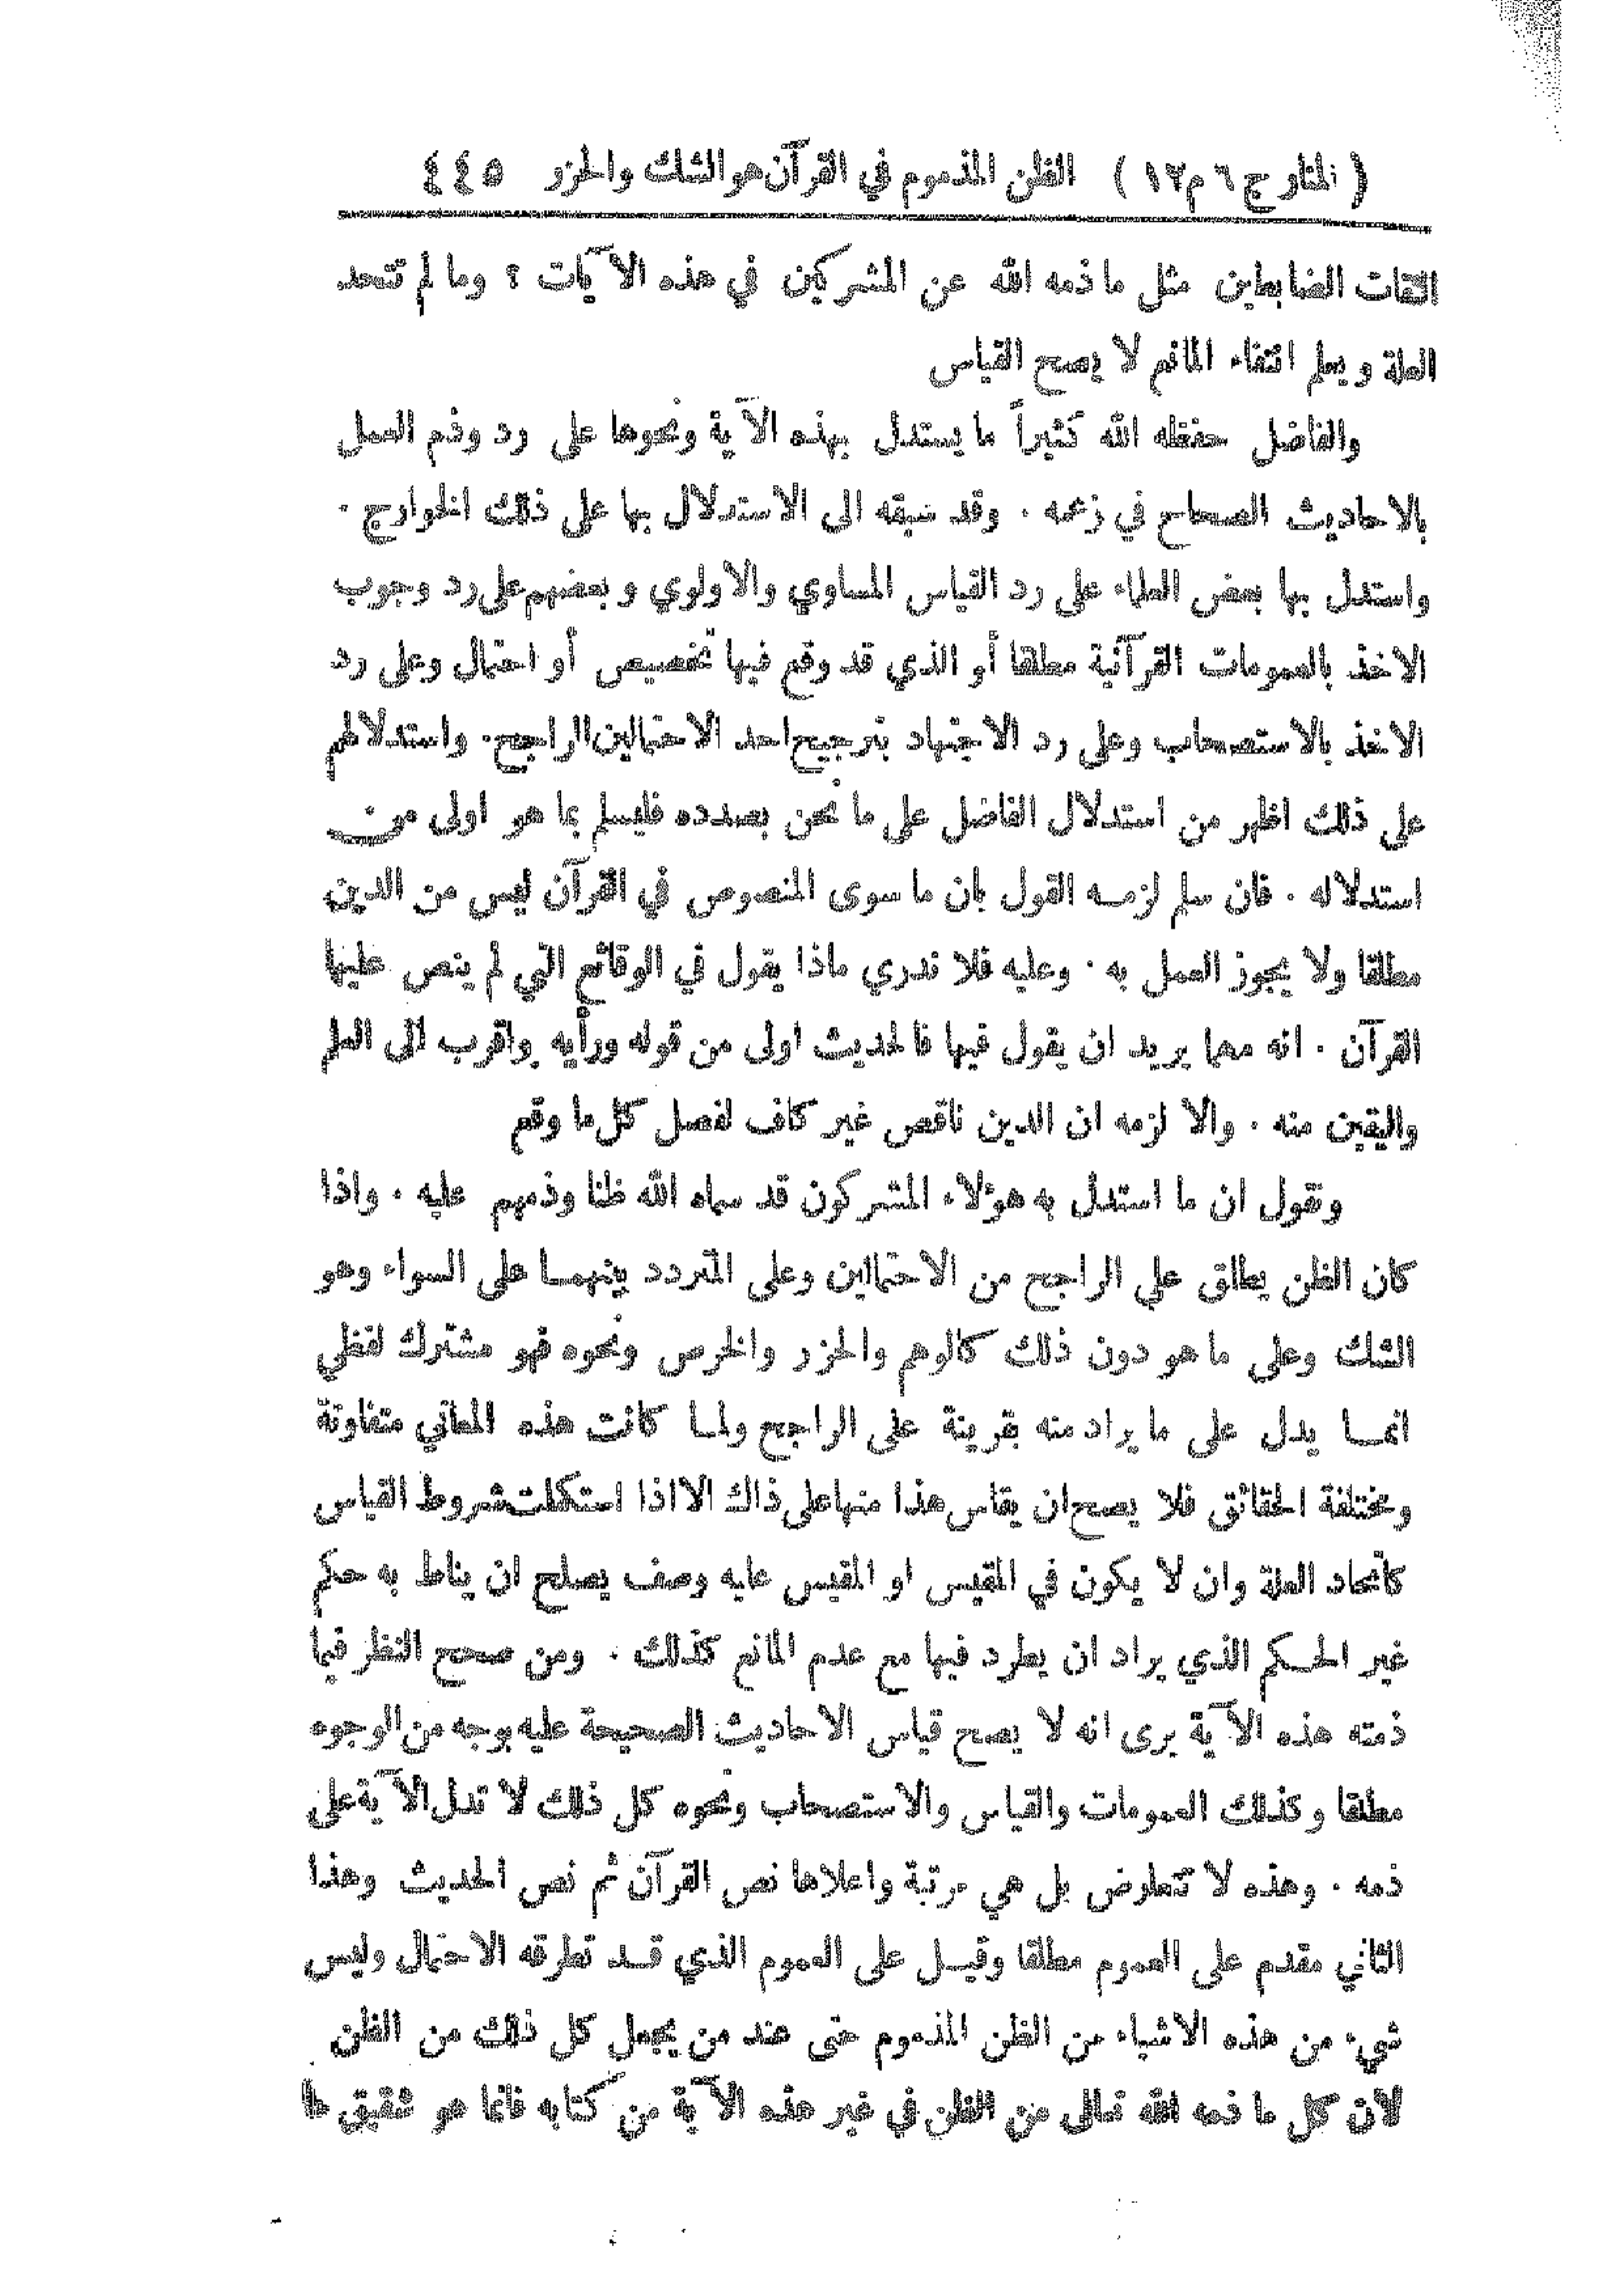 ( المنار ج ٦ م ١٢ ) الظن المذموم في القرآن هو الشك والحزر ٤٤٥
الثقات الضابطين مثل ما ذمه الله عن المشركين في هذه الآيات ؟ وما لم تتحد
العلة ويعلم انتفاء المانع لا يصح القياس
والفاضل حفظه الله كثيراً ما يستدل بهذه الآية ونحوها على رد وذم العمل
بالاحاديث الصحاح في زعمه . وقد سبقه الى الاستدلال بها على ذلك الخوارج .
واستدل بها بعض العلماء على رد القياس المساوي والاولوي وبعضهم على رد وجوب
الاخذ بالعمومات القرآنية مطلقا أو الذي قد وقع فيها تخصيص أو احتمال وعلى رد
الاخذ بالاستصحاب وعلى رد الاجتهاد بترجيح احد الاحتمالين الراجح . واستدلالهم
على ذلك اظهر من استدلال الفاضل على ما نحن بصدده فليسلم بما هو اولى من
استدلاله . فان سلم لزمه القول بان ما سوى المنصوص في القرآن ليس من الدين
مطلقا ولا يجوز العمل به . وعليه فلا ندري ماذا يقول في الوقائع التي لم ينص عليها
القرآن . انه مهما يريد ان يقول فيها فالحديث اولى من قوله ورأيه واقرب الى العلم
واليقين منه . والا لزمه ان الدين ناقص غير كاف لفصل كل ما وقع
ونقول ان ما استدل به هؤلاء المشركون قد سماه الله ظنا وذمهم عليه . واذا
كان الظن يطلق على الراجح من الاحتمالين وعلى المتردد بينهما على السواء وهو
الشك وعلى ما هو دون ذلك كالوهم والحزر والخرص ونحوه فهو مشترك لفظي
انما يدل على ما يراد منه بقرينة على الراجح ولما كانت هذه المعاني متفاوتة
ومختلفة الحقائق فلا يصح ان يقاس هذا منها على ذاك الا اذا استكملت شروط القياس
كاتحاد العلة وان لا يكون في المقيس او المقيس عليه وصف يصلح ان يناط به حكم
غير الحكم الذي يراد ان يطرد فيها مع عدم المانع كذلك . ومن صحح النظر فيما
ذمته هذه الآية يرى انه لا يصح قياس الاحاديث الصحيحة عليه بوجه من الوجوه
مطلقا وكذلك العمومات والقياس والاستصحاب ونحوه كل ذلك لا تدل الآية على
ذمه . وهذه لا تتعارض بل هي مرتبة واعلاها نص القرآن ثم نص الحديث وهذا
الثاني مقدم على العموم مطلقا وقيل على العموم الذي قد تطرقه الاحتمال وليس
شيء من هذه الاشياء من الظن المذموم حتى عند من يجعل كل ذلك من الظن
لان كل ما ذمه الله تعالى من الظن في غير هذه الآية من كتابه فانما هو شقيق ما